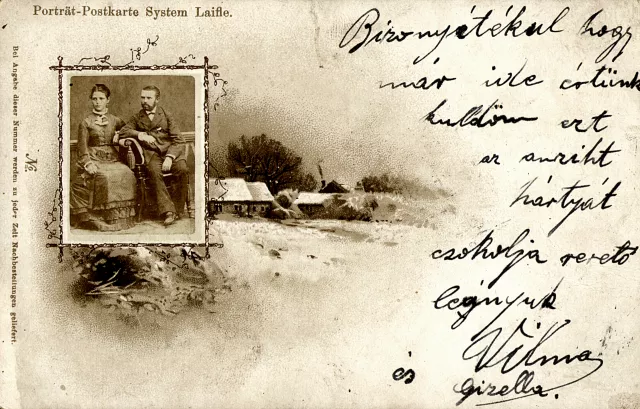 Porträt-Postkarte System Laifle.
Bei Angabe dieser Nummer werden zu jeder Zeit Nachbestellungen geliefert.
No.
Bizonyítékul hogy
már ide értünk
küldöm ezt
az anziht
kártyát
czokolja szerető
leányuk
Vilma
és
Gizella.